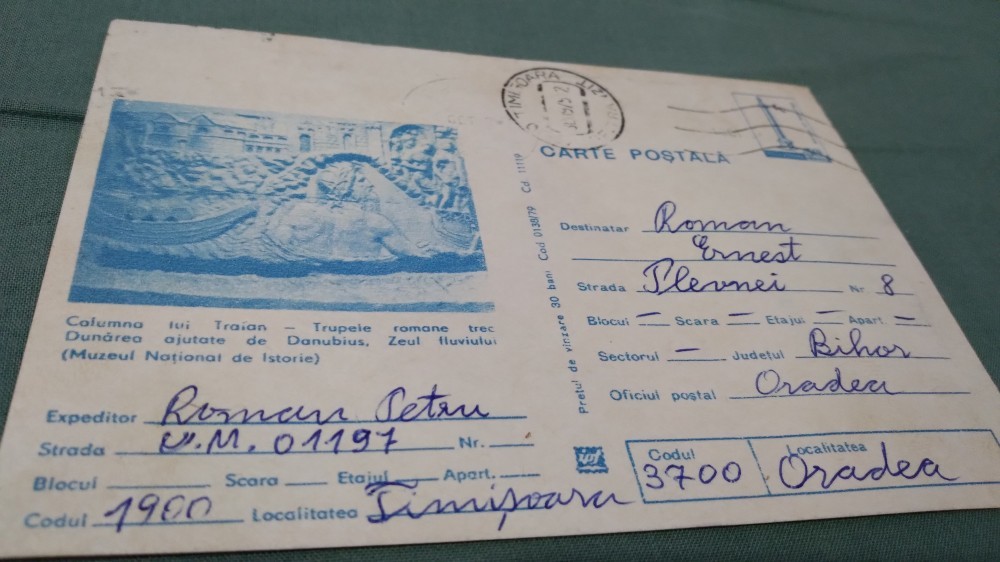 TIMIȘOARA
CARTE POȘTALĂ
Columna lui Traian — Trupele romane trec
Dunărea ajutate de Danubius, Zeul fluviului
(Muzeul Național de Istorie)
Expeditor Roman Petru
Strada U.M. 01197 Nr.
Blocul Scara Etajul Apart.
Codul 1900 Localitatea Timișoara
Prețul de vînzare 30 bani Cod 0138/79 Cd 11119
Destinatar Roman
Ernest
Strada Plevnei Nr. 8
Blocul — Scara — Etajul — Apart. —
Sectorul — Județul Bihor
Oficiul poștal Oradea
Codul Localitatea
3700 Oradea